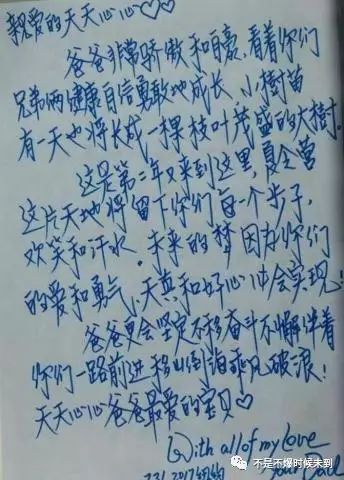 亲爱的天天心心♡♡
爸爸非常骄傲和自豪,看着你们
兄弟俩健康自信勇敢地成长,小樹苗
有一天也将长成一棵枝叶茂盛的大樹.
这是第二年又来到这里,夏令营
这片天地将留下你们每一个步子,
欢笑和汗水.未来的梦因为你们
的爱和勇气、天真和好心
会实现!
爸爸更会坚定不移奋斗不懈伴着
你们一路前进移山倒海乘风破浪!
天天心心爸爸最爱的宝贝♡
With all of my love
Your Dad
7.31.2017纽约
不是不爆时候未到